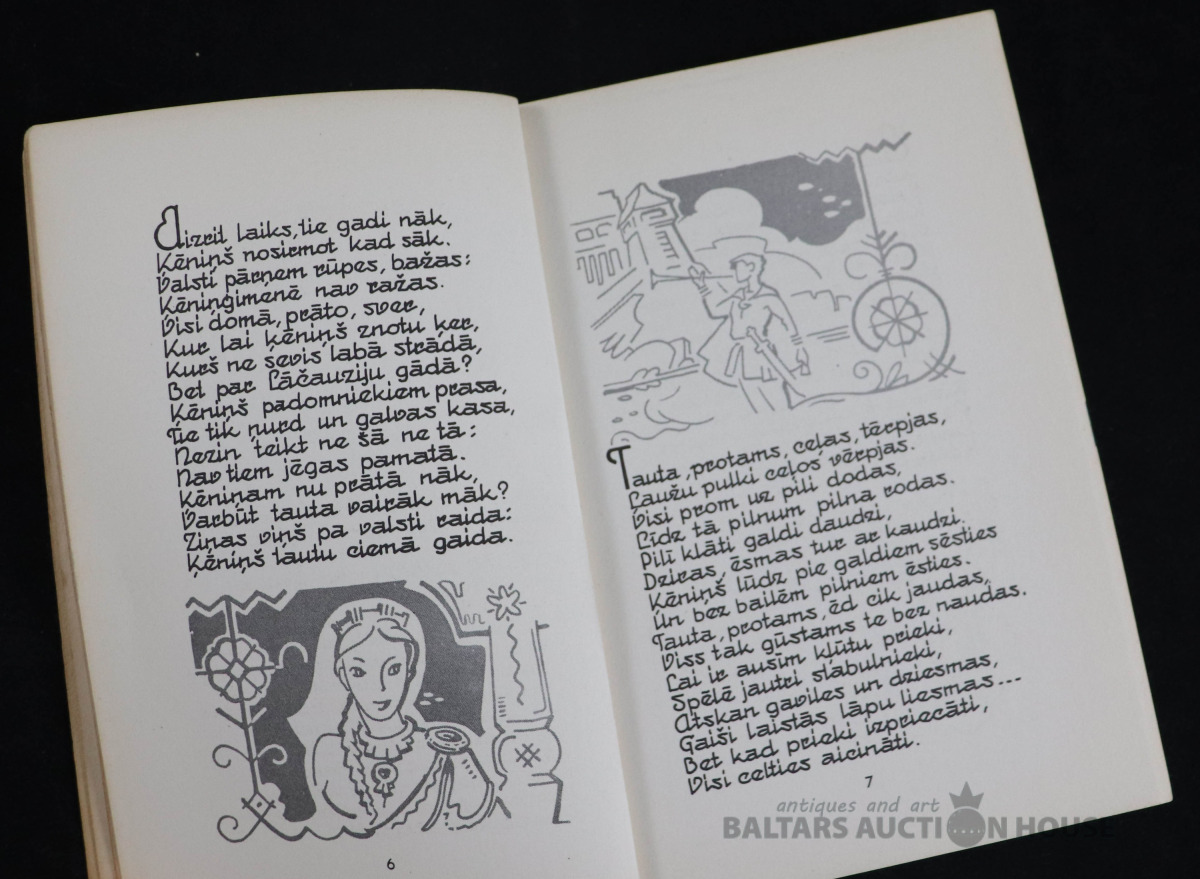 Aizrit laiks, tie gadi nāk,
Ķēniņš nosirmot kad sāk.
Valsti pārņem rūpes, bažas:
Ķēniņģimenē nav ražas.
Visi domā, prāto, sver,
Kur lai ķēniņš znotu ķer,
Kurš ne sevis labā strādā,
Bet par Lāčauziju gādā?
Ķēniņš padomniekiem prasa,
Tie tik ņurd un galvas kasa,
Nezin teikt ne šā ne tā:
Nav tiem jēgas pamatā.
Ķēniņam nu prātā nāk,
Varbūt tauta vairāk māk?
Ziņas viņš pa valsti raida:
Ķēniņš tautu ciemā gaida.
6
Tauta, protams, ceļas, tērpjas,
Ļaužu pulki ceļos vērpjas.
Visi prom uz pili dodas,
Līdz tā pilnum pilna rodas.
Pilī klāti galdi daudzi,
Dziras, ēsmas tur ar kaudzi.
Ķēniņš lūdz pie galdiem sēsties
Un bez bailēm pilniem ēsties.
Tauta, protams, ēd cik jaudas,
Viss tak gūstams te bez naudas.
Lai ir ausīm kļūtu prieki,
Spēlē jautri stabulnieki,
Atskan gaviles un dziesmas,
Gaiši laistās lāpu liesmas...
Bet kad prieki izpriecāti,
Visi celties aicināti.
7
antiques and art
BALTARS AUCTION HOUSE